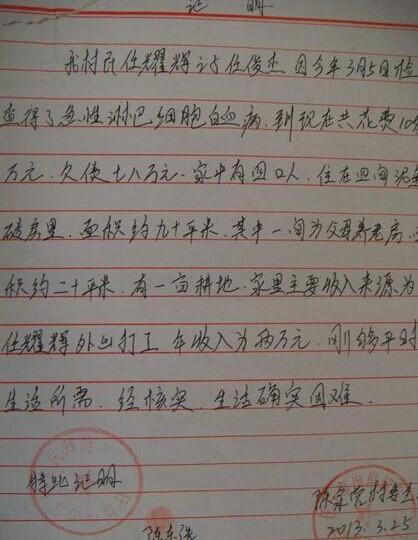 证 明
我村民任耀辉之子任俊杰因今年3月5日检
查得了急性淋巴细胞白血病,到现在共花费10余
万元.欠债七八万元.家中有四口人,住在四间泥
破房里.面积约九十平米.其中一间为父母养老房,
积约二十平米,有一亩耕地.家里主要收入来源为
任耀辉外出打工,年收入为两万元,刚够平时
生活所需.经核实,生活确实困难.
特此证明
村委会
2013.3.25